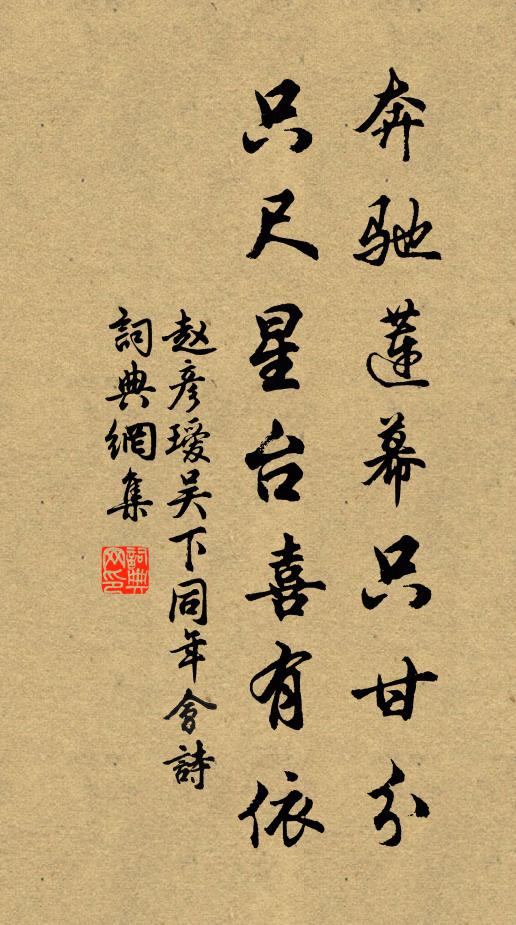 奔驰蓮幕只甘分
只尺星台喜有依
赵彦瑷吴下同年會詩
詞典網集
詞典网印